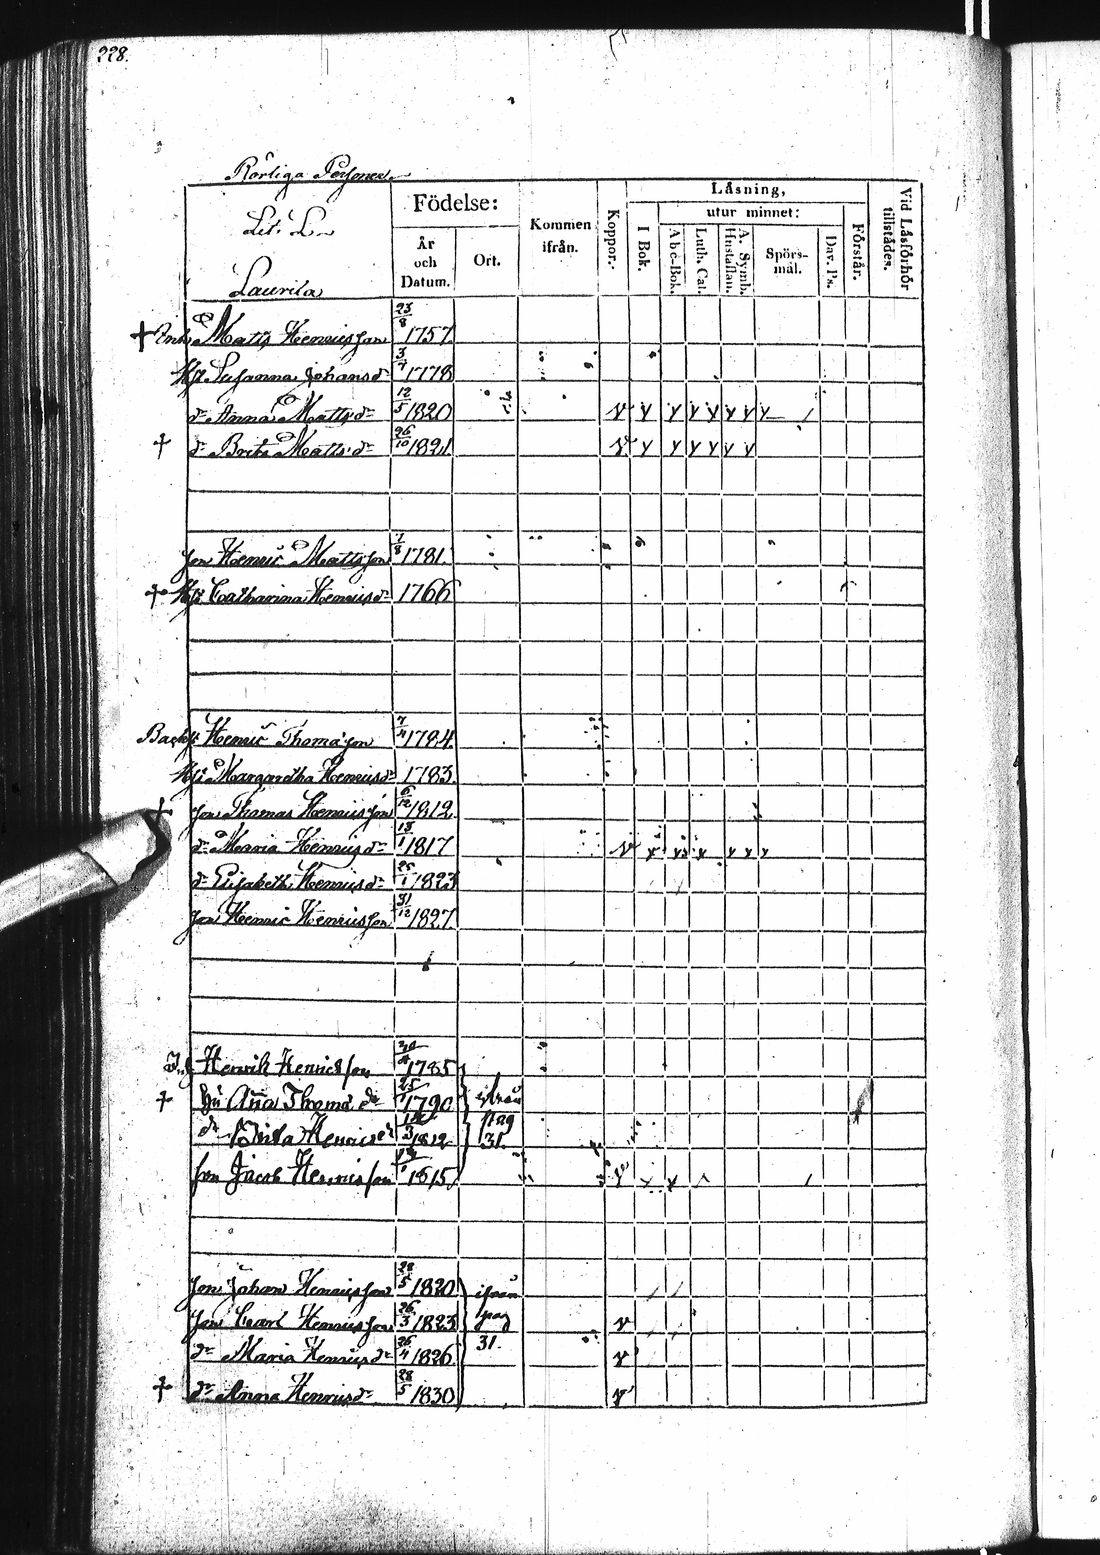 228.
Rörliga Personer
Lit. L.
Laurila
Födelse:
År och Datum.
Ort.
Kommen ifrån.
Koppor.
Läsning,
I Bok.
utur minnet:
Abc-Bok.
Luth. Cat.
A. Symb. Hustaflan.
Spörs-mål.
Dav. Ps.
Förstår.
Vid Låsförhör tillstädes.
† Enk. Matts Henricsson 23/8 1757.
Hu Susanna Johansdr 3/7 1778
dr Anna Mattsdr 12/5 1820 v y y y y y y y
† dr Brita Mattsdr 26/10 1821. v y y y y y y
son Henric Mattsson 1/8 1781.
† Hu Catharina Henricsdr 1766
Henric Thomasson 7/4 1784.
Hu Margaretha Henricsdr 1783
† son Thomas Henricsson 6/12 1812
dr Maria Henricsdr 1817
dr Elisabeth Henricsdr 25/1 1823
son Henric Henricsson 31/12 1827.
Henrik Henricsson 1785
† Hu Anna Thomædr 25 1790 ifrån
dr Brita Henricsdr 3 1812 pag
31.
son Jacob Henricsson 1815
son Johan Henricsson 22/5 1820 ifrån
son Carl Henricsson 26/3 1823 pag v
31.
dr Maria Henricsdr 26/4 1826 v
† dr Anna Henricsdr 28/5 1830 v